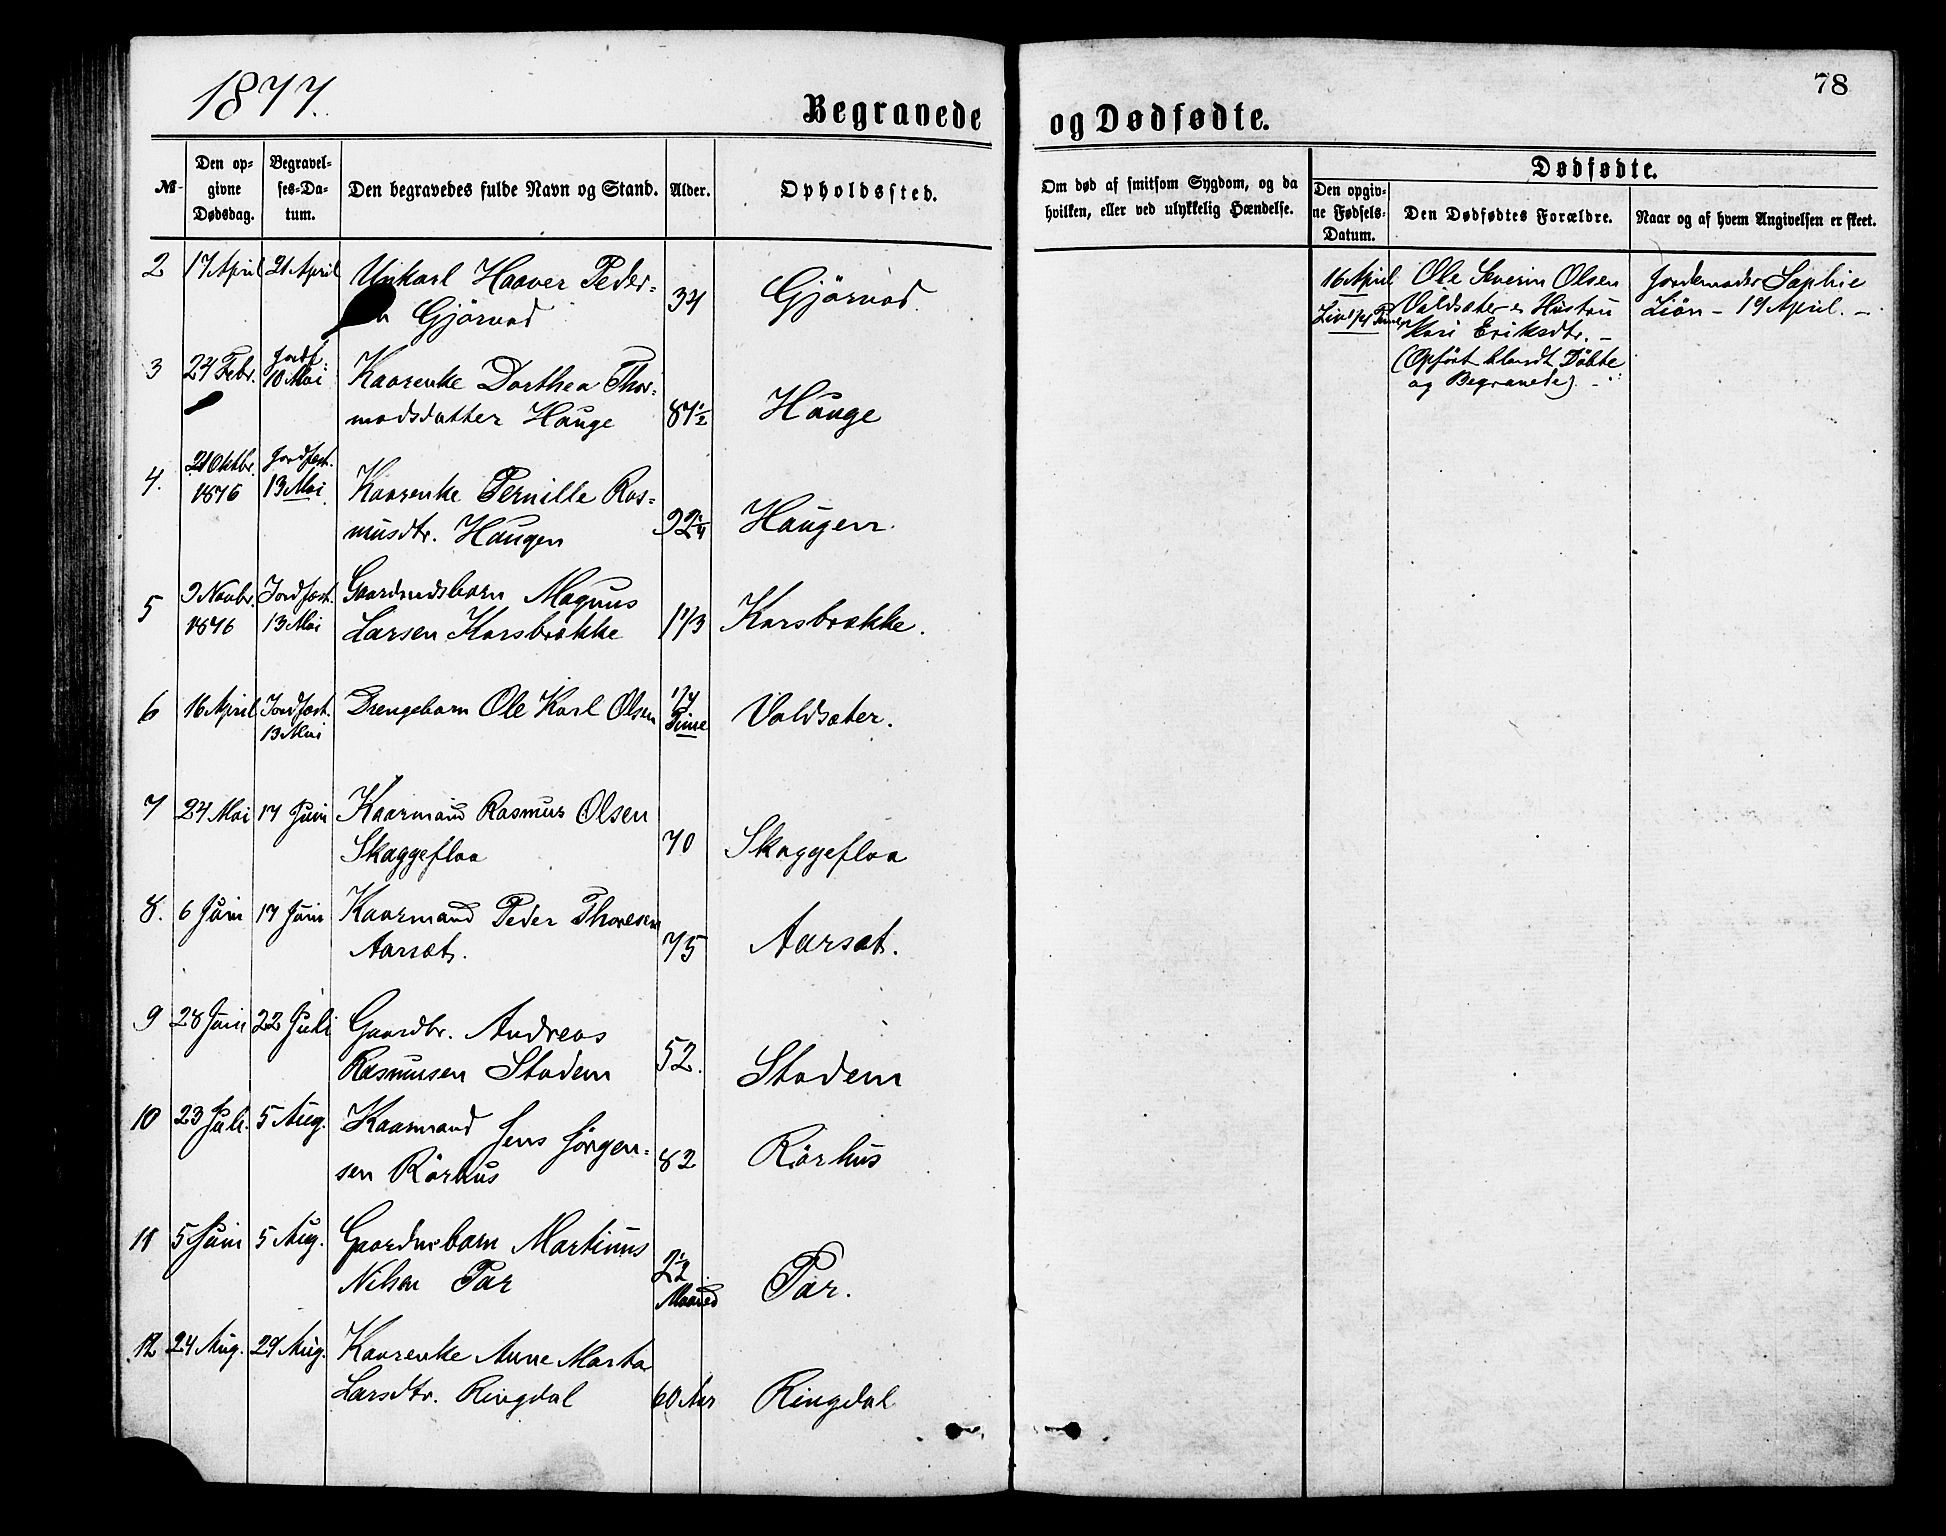 1877.
Begravede
№
Den op-
givne
Dødsdag.
Begravel-
ses-Da-
tum.
Den begravedes fulde Navn og Stand.
Alder.
Opholdssted.
2 17 April 21 April Unkarl Haaver Peder-
Gjörvad 34 Gjörvad
3 24 Febr. Jordf. 10 Mai Kaarenke Dorthea Thor-
modsdatter Hauge 87½ Hauge
4. 21 Oktbr. 1876 Jordfæst. 13 Mai Kaarenke Pernille Ras-
musdtr. Haugen 92¼ Haugen.
5 9 Novbr. 1876 Jordfæst. 13 Mai Gaardmdsbarn Magnus
Larsen Korsbrække 1⅓ Korsbrække.
6 16 April Jordfæst. 13 Mai Drengebarn Ole Karl Olsen ¼ Time Valdsæter.
7 24 Mai 17 Juni Kaarmand Rasmus Olsen
Skaggefloa 70 Skaggefloa
8. 6 Juni 17 Juni Kaarmand Peder Thoresen
Aarsæt. 75 Aarsæt.
9 28 Juni 22 Juli Gaardbr. Andreas
Rasmussen Stadem 52. Stadem
10 23 Juli. 5 Aug. Kaarmand Jens Jörgen-
sen Rörhus 82 Rörhus
11 5 Juni 5 Aug. Gaardmsbarn Martinus
Nilsen Par 2½ Maaned Par.
12 24 Aug. 29 Aug. Kaarenke Anne Marta
Larsdtr. Ringdal 60 Aar Ringdal
78
og Dødfødte.
Om død af smitsom Sygdom, og da
hvilken, eller ved ulykkelig Hændelse.
Dødfødte.
Den opgiv-
ne Fødsels-
Datum.
Den Dødfødtes Forældre.
Naar og af hvem Angivelsen er skeet.
16 April Ole Severin Olsen Jordemoder Saphie
Valdsæter og Hustru Liön - 19 April. -
Kari Eriksdtr. -
(Opfört blandt Döbte
og Begravede). -